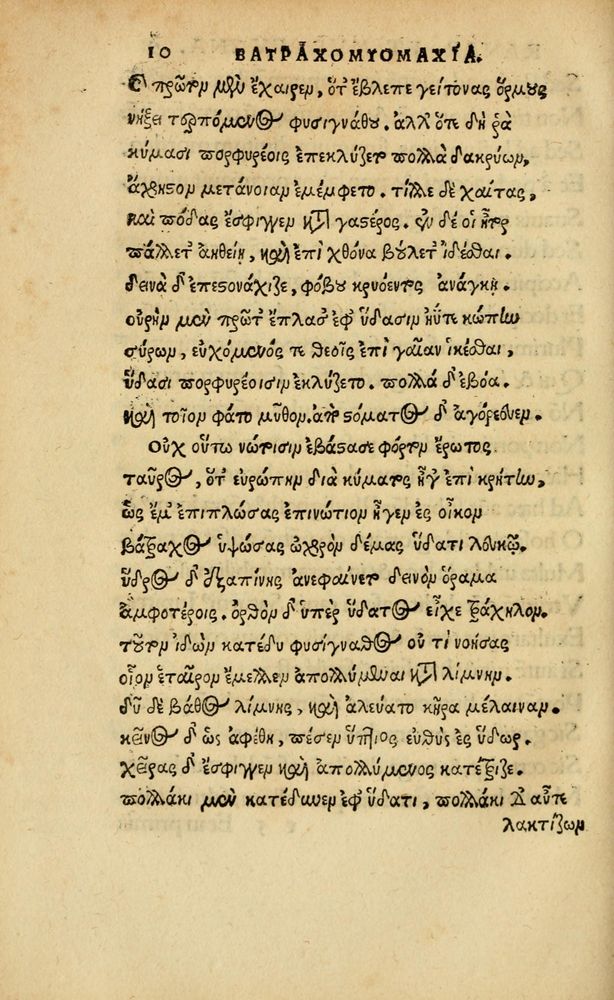 10 ΒΑΤΡΑΧΟΜΥΟΜΑΧΊΑ.
πρῶτον μὲν ἔχαιρεν, ὅτ' ἔβλεπε γείτονας ὅρμους
νήξει τερπόμενος φυσιγνάθου. ἀλλ' ὅτε δή ῥα
κύμασι πορφυρέοις ἐπεκλύζετο πολλὰ δακρύων,
ἄχρηστον μετάνοιαν ἐμέμφετο. τίλλε δὲ χαίτας,
καὶ πόδας ἔσφιγγεν κατὰ γαστέρος. ἐν δέ οἱ ἦτορ
πάλλετ' ἀηθείῃ, καὶ ἐπὶ χθόνα βούλετ' ἰδέσθαι.
δεινὰ δ' ἐπεστονάχιζε, φόβου κρυόεντος ἀνάγκῃ.
οὐρὴν μὲν πρῶτ' ἔπλασ' ἐφ' ὕδασιν ἠΰτε κώπην
σύρων, εὐχόμενός τε θεοῖς ἐπὶ γαῖαν ἱκέσθαι,
ὕδασι πορφυρέοισιν ἐκλύζετο. πολλὰ δ' ἐβόα.
καὶ τοῖον φάτο μῦθον. ἀπὸ στόματος δ' ἀγόρευεν.
Οὐχ οὕτω νώτοισιν ἐβάστασε φόρτον ἔρωτος
ταῦρος, ὅτ' εὐρώπην διὰ κύματος ἦγ' ἐπὶ κρήτην,
ὡς ἔμ' ἐπιπλώσας ἐπινώτιον ἦγεν ἐς οἶκον
βάτραχος ὑψώσας ὠχρὸν δέμας ὕδατι λευκῷ.
ὕδρος δ' ἐξαπίνης ἀνεφαίνετο δεινὸν ὅραμα
ἀμφοτέροις. ὀρθὸν δ' ὑπὲρ ὕδατος εἶχε τράχηλον.
τοῦτον ἰδὼν κατέδυ φυσίγναθος οὔ τι νοήσας
οἷον ἑταῖρον ἔμελλεν ἀπολλύμεναι κατὰ λίμνην.
δῦ δὲ βάθος λίμνης, καὶ ἀλεύατο κῆρα μέλαιναν.
κεῖνος δ' ὡς ἀφέθη, πέσεν ὕπτιος εὐθὺς ἐς ὕδωρ.
χεῖρας δ' ἔσφιγγεν καὶ ἀπολλύμενος κατέτριζε.
πολλάκι μὲν κατέδυνεν ἐφ' ὕδατι, πολλάκι δ' αὖτε
λακτίζων